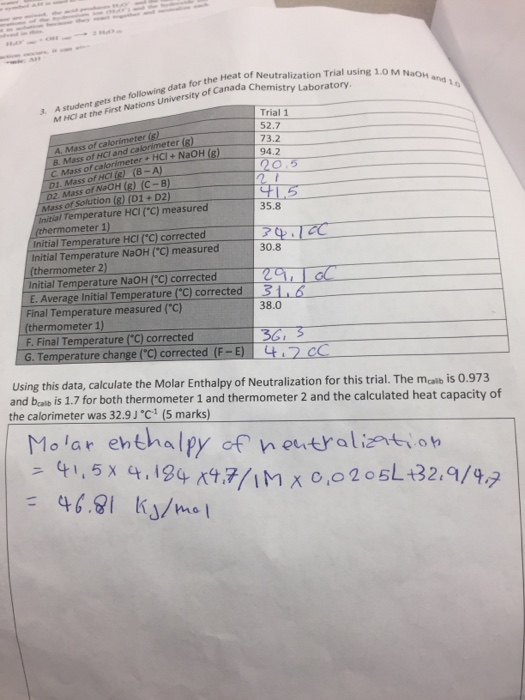 3. A student gets the following data for the Heat of Neutralization Trial using 1.0 M NaOH and 1.0
M HCl at the First Nations University of Canada Chemistry Laboratory.
Trial 1
A. Mass of calorimeter (g) 52.7
B. Mass of HCl and calorimeter (g) 73.2
C. Mass of calorimeter + HCl + NaOH (g) 94.2
D1. Mass of HCl (g) (B – A) 20.5
D2. Mass of NaOH (g) (C – B) 21
Mass of Solution (g) (D1 + D2) 41.5
Initial Temperature HCl (°C) measured 35.8
(thermometer 1)
Initial Temperature HCl (°C) corrected 34.1 oC
Initial Temperature NaOH (°C) measured 30.8
(thermometer 2)
Initial Temperature NaOH (°C) corrected 29.1 oC
E. Average Initial Temperature (°C) corrected 31.6
Final Temperature measured (°C) 38.0
(thermometer 1)
F. Final Temperature (°C) corrected 36.3
G. Temperature change (°C) corrected (F – E) 4.7 oC
Using this data, calculate the Molar Enthalpy of Neutralization for this trial. The mcalib is 0.973
and bcalib is 1.7 for both thermometer 1 and thermometer 2 and the calculated heat capacity of
the calorimeter was 32.9 J °C-1 (5 marks)
Molar enthalpy of neutralization
= 41.5 x 4.184 x4.7/1M x 0.0205L+32.9/4.7
= 46.81 KJ/mol